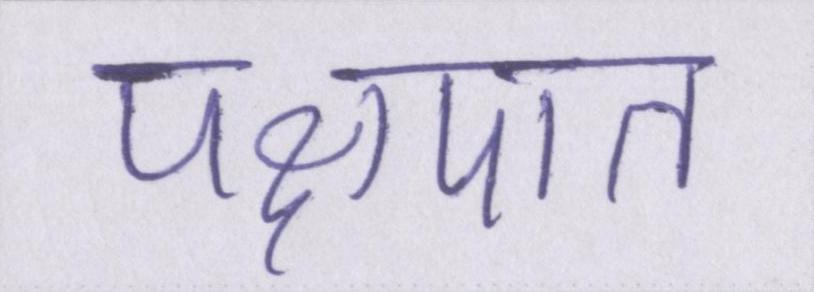 पक्षपात